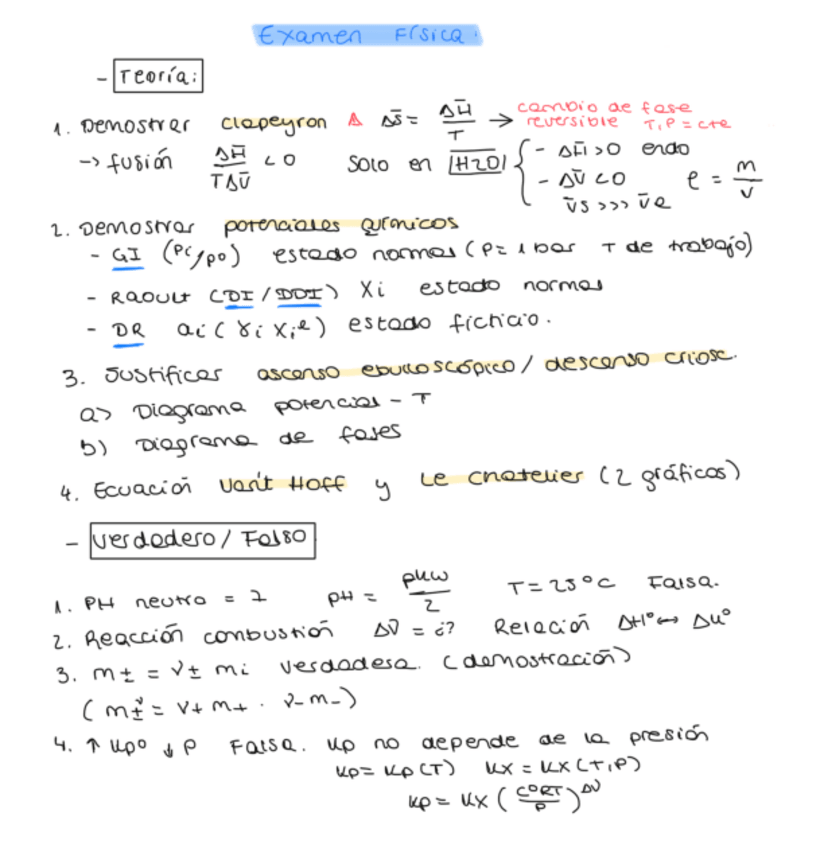 Examen Física.
- Teoría:
1. Demostrar clapeyron Δ ΔS̄ = ΔH̄/T → cambio de fase reversible T, P = cte
→ fusión ΔH̄/TΔV̄ < 0 Solo en |H2O| { - ΔH̄ > 0 endo
- ΔV̄ < 0 ρ = m/V
V̄s >>> V̄l
2. Demostrar potenciales químicos
- GI (Pi/p°) estado normal (P = 1 bar T de trabajo)
- Raoult (DI / DDI) Xi estado normal
- DR ai (γi Xiˡ) estado ficticio.
3. Justificar ascenso ebulloscópico / descenso criosc.
a) Diagrama potencial - T
b) Diagrama de fases
4. Ecuación Van't Hoff y Le Chatelier (2 gráficos)
- Verdadero / Falso
1. PH neutro = 7 pH = pKw/2 T = 25°C Falsa.
2. Reacción combustión ΔV̂ = ¿? Relación ΔH° ↔ ΔU°
3. m± = ν± mi verdadera. (demostración)
(m±^ν = ν+ m+ · ν- m-)
4. ↑ Kp° ↓ P Falsa. Kp no depende de la presión
Kp = Kp(T) Kx = Kx(T, P)
Kp = Kx (C°RT/P)^Δν